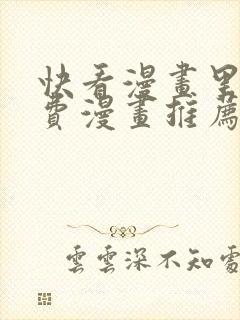 快看漫畫里
費漫畫推薦
雲雲深不知處